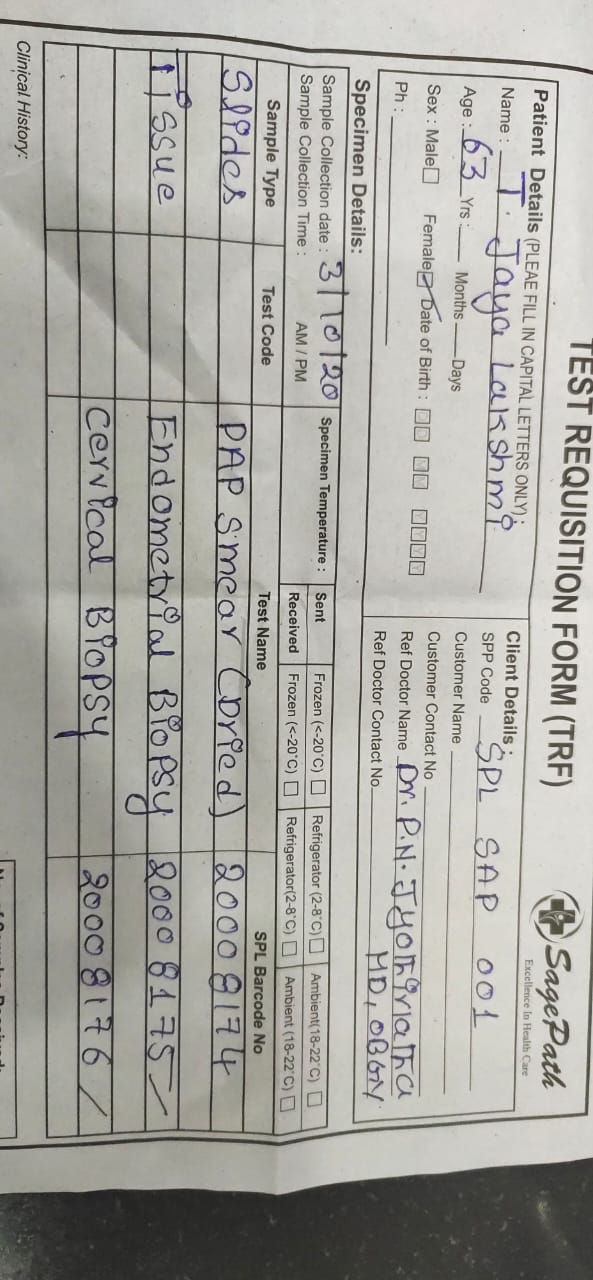 TEST REQUISITION FORM (TRF)
SagePath
Excellence In Health Care
Patient Details (PLEAE FILL IN CAPITAL LETTERS ONLY):
Name : T. Jaya Lakshmi
Age : 63 Yrs : Months Days
Sex : Male Female Date of Birth :
Ph :
Client Details :
SPP Code SPL SAP 001
Customer Name
Customer Contact No
Ref Doctor Name Dr. P.N. Jyothirlatha
Ref Doctor Contact No. MD, OBGY
Specimen Details:
Sample Collection date : 3/10/20
Sample Collection Time : AM / PM
Specimen Temperature :
Sent Frozen (<-20°C) Refrigerator (2-8°C) Ambient(18-22°C)
Received Frozen (<-20°C) Refrigerator(2-8°C) Ambient (18-22°C)
Sample Type Test Code Test Name SPL Barcode No
Slides PAP Smear (Dried) 20008174
Tissue Endometrial Biopsy 20008175
Cervical Biopsy 20008176
Clinical History: